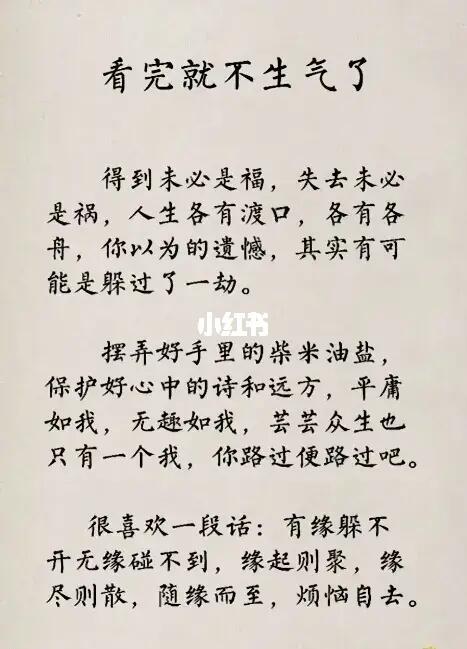 看完就不生气了
得到未必是福，失去未必
是祸，人生各有渡口，各有各
舟，你以为的遗憾，其实有可
能是躲过了一劫。
小红书
摆弄好手里的柴米油盐，
保护好心中的诗和远方，平庸
如我，无趣如我，芸芸众生也
只有一个我，你路过便路过吧。
很喜欢一段话：有缘躲不
开无缘碰不到，缘起则聚，缘
尽则散，随缘而至，烦恼自去。